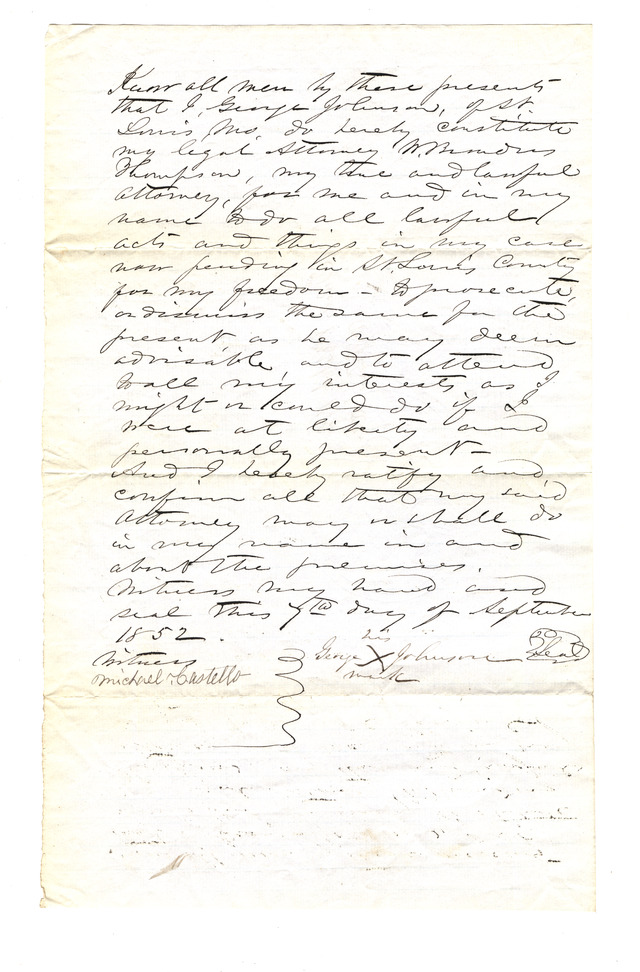 Know all men by these presents
that I, George Johnson, of St.
Louis, Mo, do hereby constitute
my legal Attorney
Thompson, my true and lawful
attorney, for me and in my
name to do all lawful
acts and things in my case
now pending in St Louis County
for my freedom - to prosecute,
or dismiss the same for the
present as he may deem
advisable and to attend
to all my interests as I
might or could do if I
were at liberty and
personally present -
And I hereby ratify and
confirm all that my said
Attorney may or shall do
in my name in and
about the premises.
Witness my hand and
seal this 7th day of September
1852.
his
George X Johnson Seal
mark
Witness
Michael Castello